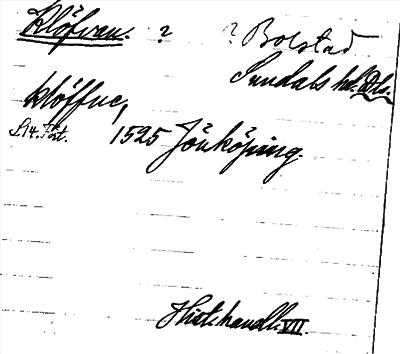 Klöfvan. ? ? Bolstad
Sundals hd. Dls.
klöffue,
1525 Jönköping.
Hist. handl. VII.